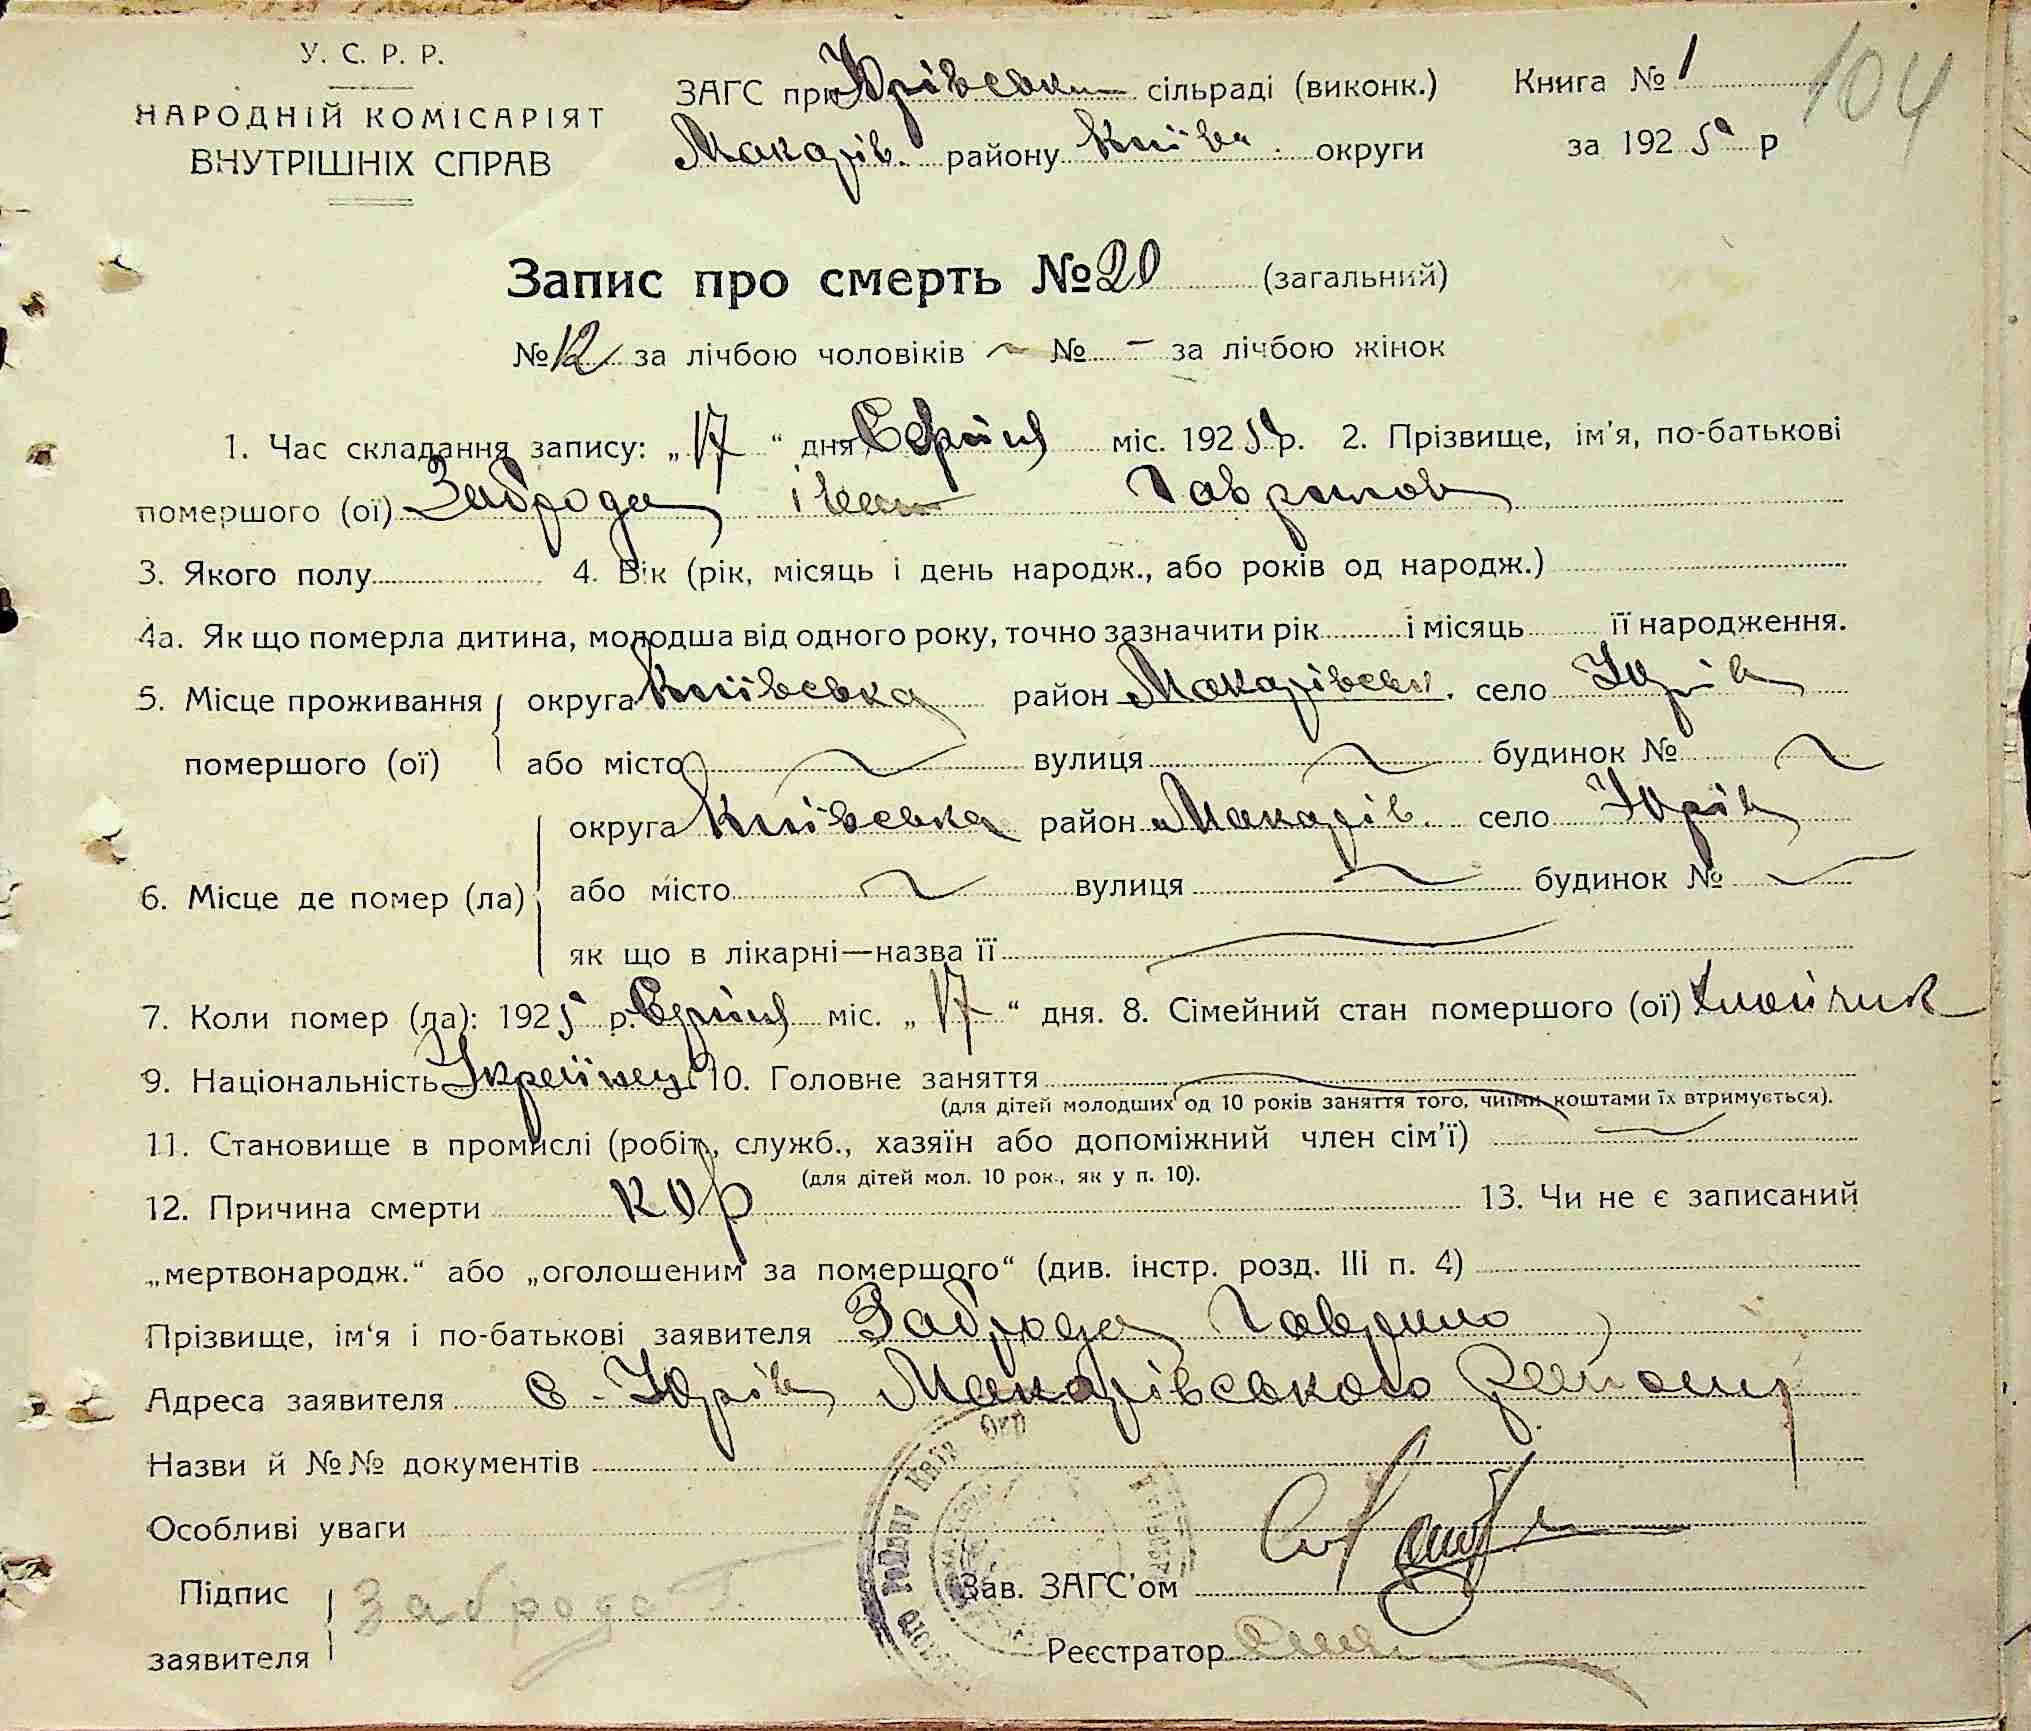 У. С. Р. Р.
НАРОДНІЙ КОМІСАРІЯТ
ВНУТРІШНІХ СПРАВ
ЗАГС при Юрівськи сільраді (виконк.)
Макарів. району Київ округи
Книга № 1
за 1925 р
104
Запис про смерть № 20 (загальний)
№ 12 за лічбою чоловіків ~ № – за лічбою жінок
1. Час складання запису: „17“ дня Серпня міс. 1925 р. 2. Прізвище, ім'я, по-батькові
помершого (ої) Заброда Іван Гаврилов
3. Якого полу 4. Вік (рік, місяць і день народж., або років од народж.)
4а. Як що померла дитина, молодша від одного року, точно зазначити рік і місяць її народження.
5. Місце проживання помершого (ої) округа Київська район Макарівськ. село Юрів
або місто ~ вулиця ~ будинок № ~
6. Місце де помер (ла) округа Київська район Макарів. село Юрів
або місто ~ вулиця ~ будинок № ~
як що в лікарні—назва її
7. Коли помер (ла): 1925 р. Серпня міс. „17“ дня. 8. Сімейний стан помершого (ої) Хлопчик
9. Національність Українець 10. Головне заняття
(для дітей молодших од 10 років заняття того, чиїми коштами їх втримується).
11. Становище в промислі (робіт., служб., хазяїн або допоміжний член сім'ї)
(для дітей мол. 10 рок., як у п. 10).
12. Причина смерти кор 13. Чи не є записаний
„мертвонародж.“ або „оголошеним за помершого“ (див. інстр. розд. III п. 4)
Прізвище, ім'я і по-батькові заявителя Заброда Гаврило
Адреса заявителя с. Юрів Макарівського району
Назви й №№ документів
Особливі уваги
Підпис заявителя Заброда Г.
Зав. ЗАГС'ом
Реєстратор